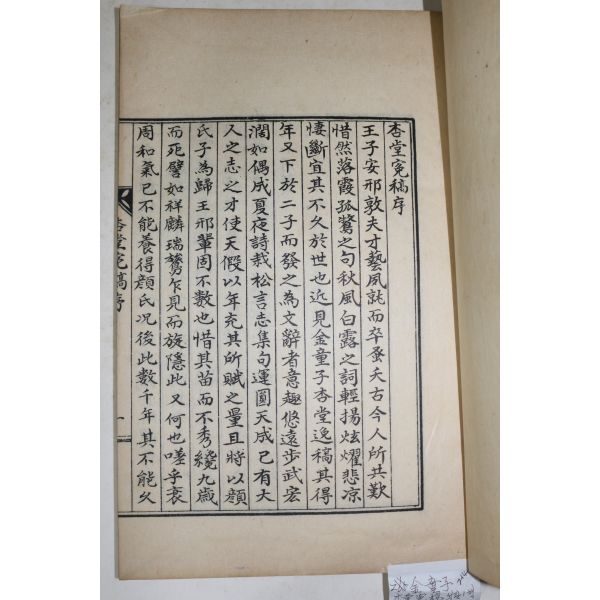 杏堂寃稿序
王子安邢敦夫才藝夙就而卒蚤夭古今人所共歎
惜然落霞孤鶩之句秋風白露之詞輕揚炫燿悲凉
悽斷宜其不久於世也近見金童子杏堂逸稿其得
年又下於二子而發之為文辭者意趣悠遠步武宏
濶如偶成夏夜詩栽松言志集句運圓天成已有大
人之志之才使天假以年充其所賦之量且將以顔
氏子為歸王邢軰固不數也惜其苗而不秀纔九歲
而死譬如祥麟瑞鸞乍見而旋隱此又何也嗟乎衰
周和氣已不能養得顔氏况後此數千年其不能久
杏堂寃稿序
一
金童子